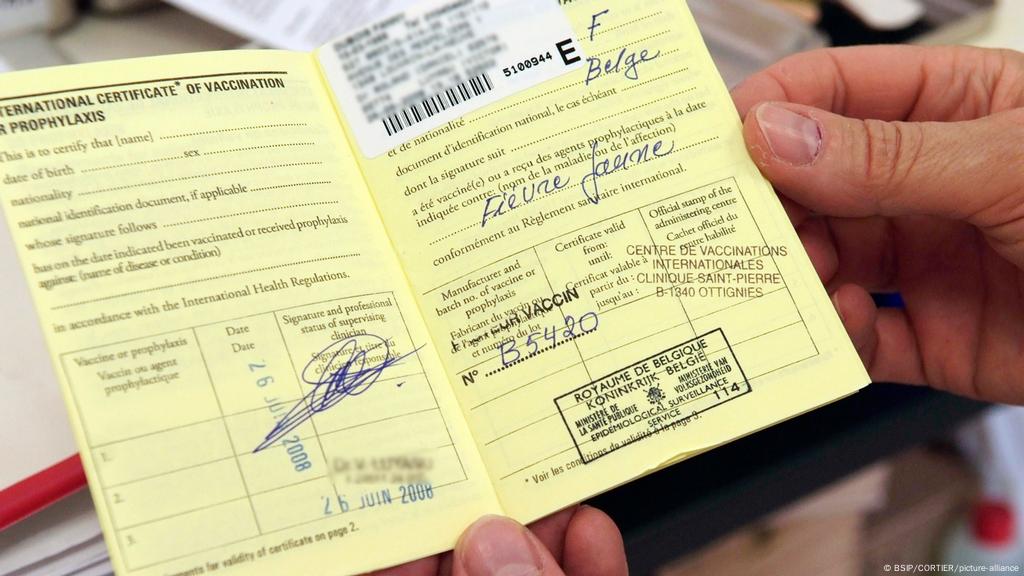 TERNATIONAL CERTIFICATE* OF VACCINATION
R PROPHYLAXIS
This is to certify that [name]
date of birth sex
nationality
national identification document, if applicable
whose signature follows
has on the date indicated been vaccinated or received prophylaxis
against: (name of disease or condition)
in accordance with the International Health Regulations.
Vaccine or prophylaxis
Vaccin ou agent
prophylactique
Date
Date
Signature and professional
status of supervising
clinician
26 JUIN 2008
1.
2.
3.
26 JUIN 2008
ments for validity of certificate on page 2.
5100944 E
F
Belge
et de nationalité
document d'identification national, le cas échéant
dont la signature suit
a été vacciné(e) ou a reçu des agents prophylactiques à la date
indiquée contre: (nom de la maladie ou de l'affection)
Fièvre Jaune
conformément au Règlement sanitaire international.
Manufacturer and
batch no. of vaccine or
prophylaxis
Fabricant du vaccin
et numéro du lot
Certificate valid
from:
until:
Certificat valable à
partir du :
jusqu'au :
Official stamp of the
administering centre
Cachet officiel du
centre habilité
CENTRE DE VACCINATIONS
INTERNATIONALES
CLINIQUE SAINT-PIERRE
B-1340 OTTIGNIES
VACCIN
N° B5420
ROYAUME DE BELGIQUE
KONINKRIJK BELGIE
MINISTÈRE DE
LA SANTÉ PUBLIQUE
MINISTERIE VAN
VOLKSGEZONDHEID
EPIDEMIOLOGICAL SURVEILLANCE
SERVICE
114
* Voir les conditions de validité à la page 3.
© BSIP/CORTIER/picture-alliance